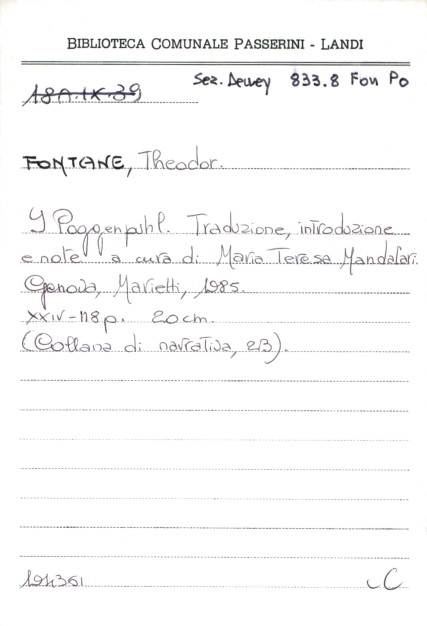 BIBLIOTECA COMUNALE PASSERINI - LANDI
Sez. Dewey 833.8 Fon Po
18A.IX.39
FONTANE, Theodor.
I Poggenpuhl. Traduzione, introduzione
e note a cura di Maria Teresa Mandalari.
Genova, Marietti, 1985.
XXIV-118 p. 20 cm.
(Collana di narrativa, 23).
194361 C